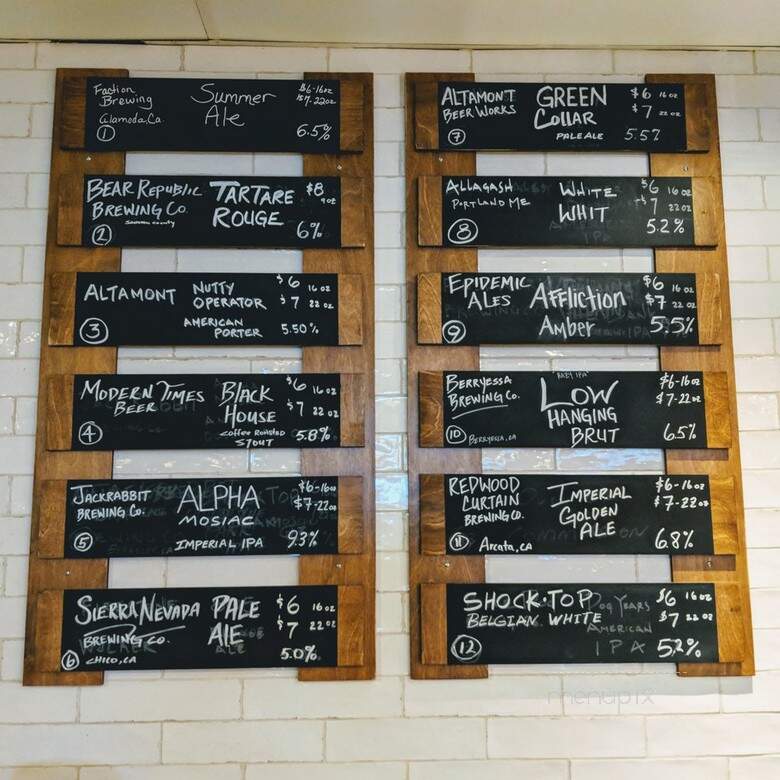 Faction Brewing
Alamoda, Ca.
1
Summer Ale
$6-16oz
$7-22oz
6.5%
BEAR REPUBLIC
BREWING CO.
Sonoma county
2
TARTARE
ROUGE
$8
9oz
6%
ALTAMONT
3
NUTTY
OPERATOR
AMERICAN
PORTER
$6 16oz
$7 22oz
5.50%
MODERN TIMES
BEER
4
BLACK
HOUSE
coffee Roasted
STOUT
$6 16oz
$7 22oz
5.8%
JACKRABBIT
BREWING CO.
5
ALPHA
MOSIAC
IMPERIAL IPA
$6-16oz
$7-22oz
9.3%
SIERRA NEVADA
BREWING CO.
6
CHICO, CA
PALE
ALE
$6 16oz
$7 22oz
5.0%
ALTAMONT
BEER WORKS
7
GREEN
Collar
PALE ALE
$6 16oz
$7 22oz
5.57
ALLAGASH
PORTLAND ME
8
WHITE
WHIT
$6 16oz
$7 22oz
5.2%
EPIDEMIC
ALES
9
Affliction
Amber
$6 16oz
$7 22oz
5.5%
BERRYESSA
BREWING CO.
10
BERRYESSA, CA
"HAZY IPA"
LOW
HANGING
BRUT
$6-16oz
$7-22oz
6.5%
REDWOOD
CURTAIN
BREWING CO.
11
Arcata, CA
IMPERIAL
GOLDEN
ALE
$6-16oz
$7-22oz
6.8%
SHOCK-TOP
BELGIAN WHITE
12
Dog Years
AMERICAN
IPA
$6 16oz
$7 22oz
5.2%
menupix